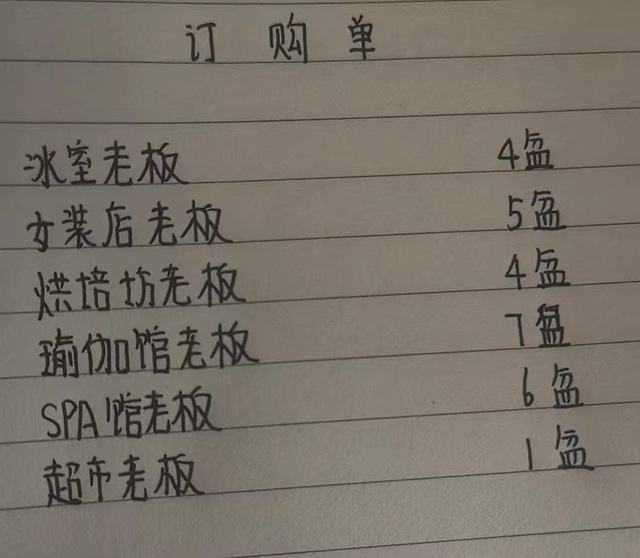 订购单
冰室老板 4盆
女装店老板 5盆
烘培坊老板 4盆
瑜伽馆老板 7盆
SPA馆老板 6盆
超市老板 1盆